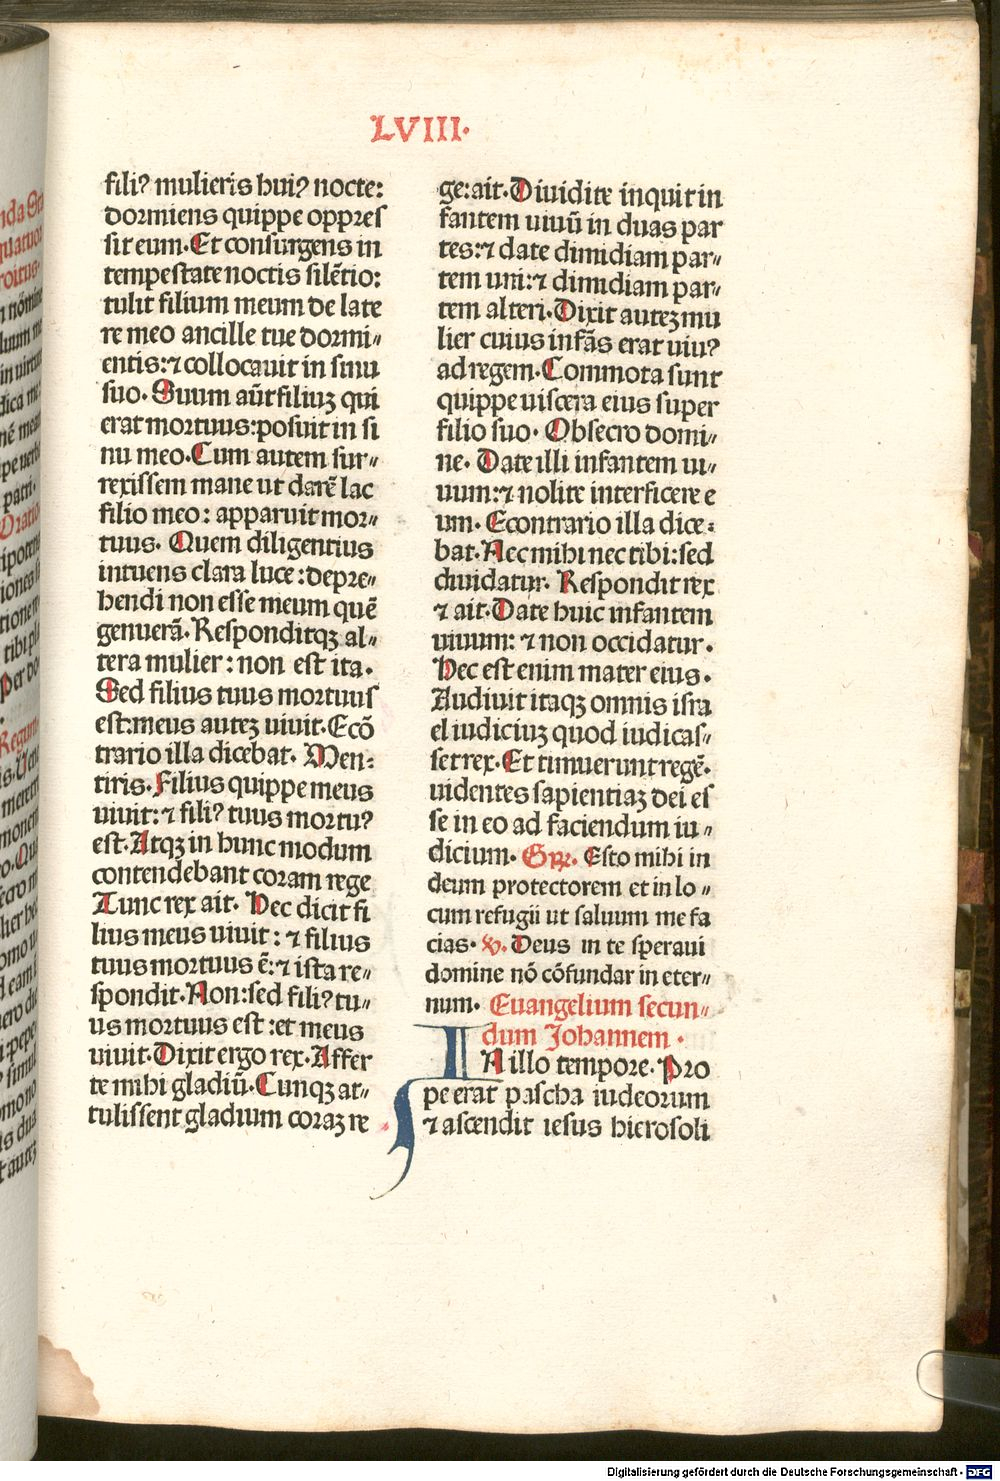 LVIII.
filiꝰ mulieris huiꝰ nocte:
dormiens quippe oppreſ
ſit eum. Et conſurgens in
tempeſtate noctis ſilētio:
tulit filium meum de late
re meo ancille tue dormi⸗
entis: ⁊ collocauit in ſinu
ſuo. Suum aūt filiuꝫ qui
erat mortuus: poſuit in ſi
nu meo. Cum autem ſur⸗
rexiſſem mane ut darē lac
filio meo: apparuit mor⸗
tuus. Quem diligentius
intuens clara luce: depre⸗
hendi non eſſe meum quē
genuerā. Reſponditqꝫ al⸗
tera mulier: non eſt ita.
Sed filius tuus mortuuſ
eſt: meus auteꝫ uiuit. Ecō
trario illa dicebat. Men⸗
tiris. Filius quippe meus
uiuit: ⁊ filiꝰ tuus mortuꝰ
eſt. Atqꝫ in hunc modum
contendebant coram rege
Tunc rex ait. Hec dicit fi
lius meus uiuit: ⁊ filius
tuus mortuus ē: ⁊ iſta re⸗
ſpondit. Non: ſed filiꝰ tu⸗
us mortuus eſt: et meus
uiuit. Dixit ergo rex. Affer
te mihi gladiū. Cunqꝫ at⸗
tuliſſent gladium coraꝫ re
ge: ait. Diuidite inquit in
fantem uiuū in duas par
tes: ⁊ date dimidiam par⸗
tem uni: ⁊ dimidiam par⸗
tem alteri. Dixit auteꝫ mu
lier cuius infās erat uiuꝰ
ad regem. Commota ſunt
quippe uiſcera eius ſuper
filio ſuo. Obſecro domi⸗
ne. Date illi infantem ui⸗
uum: ⁊ nolite interficere e
um. Econtrario illa dice⸗
bat. Nec mihi nec tibi: ſed
diuidatur. Reſpondit rex
⁊ ait. Date huic infantem
uiuum: ⁊ non occidatur.
Hec eſt enim mater eius.
Audiuit itaqꝫ omnis iſra
el iudiciuꝫ quod iudicaſ⸗
ſet rex. Et timuerunt regē.
uidentes ſapientiaꝫ dei eſ
ſe in eo ad faciendum iu⸗
dicium. Gr̄. Eſto mihi in
deum protectorem et in lo⸗
cum refugii ut ſaluum me fa
cias. v. Deus in te ſperaui
domine nō cōfundar in eter⸗
num. Euangelium ſecun⸗
dum Johannem.
IN illo tempore. Pro
pe erat paſcha iudeorum
⁊ aſcendit ieſus hieroſoli
Digitalisierung gefördert durch die Deutsche Forschungsgemeinschaft - DFG